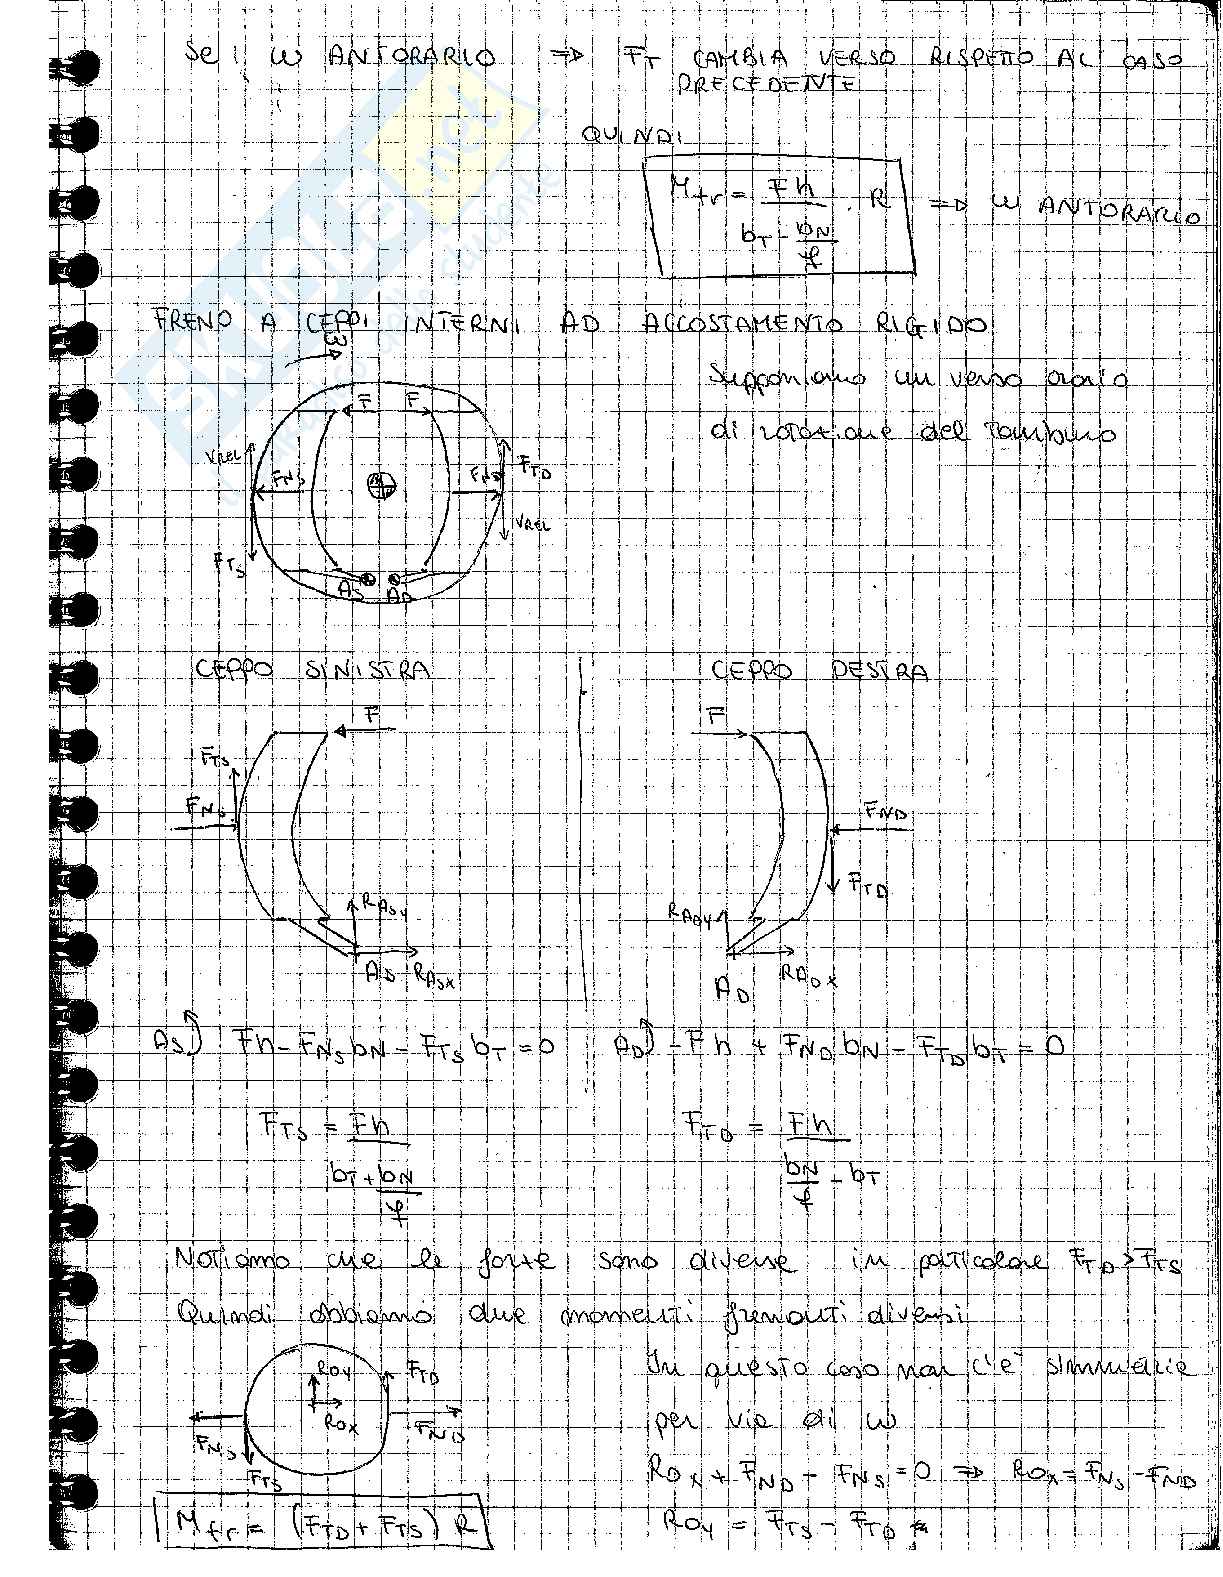 Se: ω ANTORARIO => F_T CAMBIA VERSO RISPETTO AL CASO
PRECEDENTE
QUINDI
M_fr = Fh / (b_T - b_N/f) · R => ω ANTORARIO
FRENO A CEPPI INTERNI AD ACCOSTAMENTO RIGIDO
Supponiamo un verso orario
di rotazione del tamburo
ω
F F
V_REL F_NS F_ND F_TD
V_REL
F_TS
A_S A_D
CEPPO SINISTRA
CEPPO DESTRA
F
F_TS
F_NS
R_ASY
A_S R_ASX
F
F_ND
F_TD
R_ADY
A_D R_ADX
A_S) Fh - F_NS b_N - F_TS b_T = 0
A_D) -Fh + F_ND b_N - F_TD b_T = 0
F_TS = Fh / (b_T + b_N/f)
F_TD = Fh / (b_N/f - b_T)
Notiamo che le forze sono diverse in particolare F_TD > F_TS
Quindi abbiamo due momenti frenanti diversi
R_OY F_TD
R_OX F_ND
F_NS
F_TS
In questo caso non c'è simmetrie
per via di ω
R_OX + F_ND - F_NS = 0 => R_OX = F_NS - F_ND
M_fr = (F_TD + F_TS) R
R_OY = F_TS - F_TD